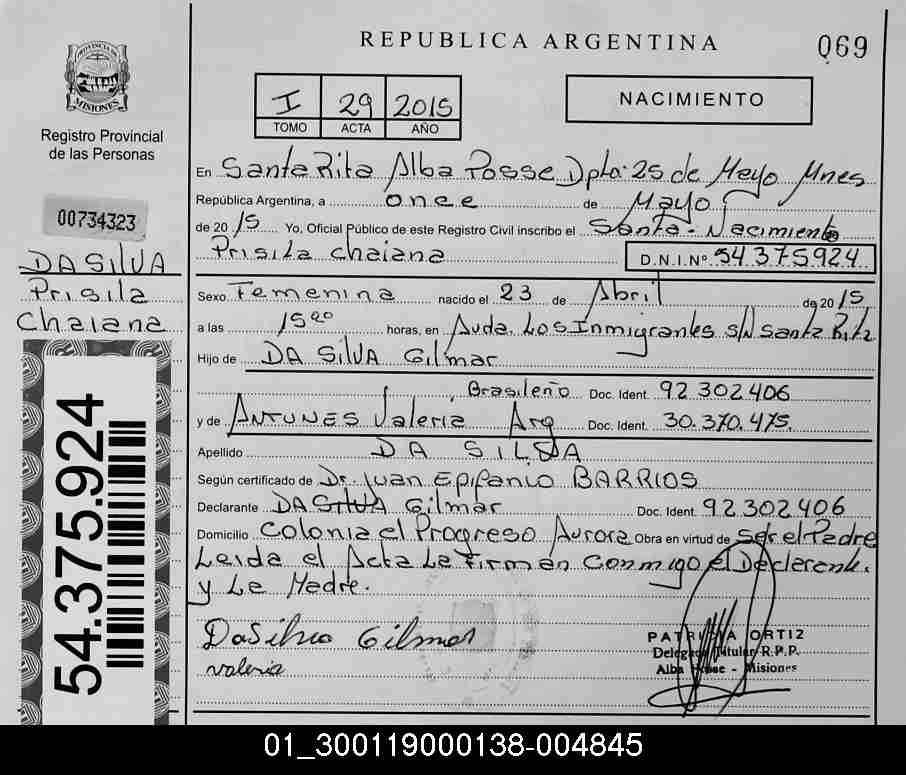 PROVINCIA DE
MISIONES
Registro Provincial
de las Personas
00734323
DA SILVA
Prisila
Chaiana
54.375.924
REPUBLICA ARGENTINA
069
I 29 2015
TOMO ACTA AÑO
NACIMIENTO
En Santa Rita Alba Posse Dpto. 25 de Mayo Mnes
República Argentina, a once de Mayo
de 2015 Yo, Oficial Público de este Registro Civil inscribo el Santa - Nacimiento
Prisila Chaiana D.N.I.Nº 54.375924
Sexo Femenina nacido el 23 de Abril de 2015
a las 1500 horas, en Avda. Los Inmigrantes s/N Santa Rita
Hijo de DA SILVA Gilmar
Brasileño Doc. Ident. 92302406
y de ANTUNES Valeria Arg Doc. Ident. 30.370.475.
Apellido DA SILVA
Según certificado de Dr. Juan Epifanio BARRIOS
Declarante DA SILVA Gilmar Doc. Ident. 92302406
Domicilio Colonia el Progreso Aurora Obra en virtud de ser el Padre
Leida el Acta La Firman Conmigo el Declarente.
y La Madre.
DaSilva Gilmar
Valeria
PATRICIA ORTIZ
Delegada Titular R.P.P.
Alba Posse - Misiones
01_300119000138-004845